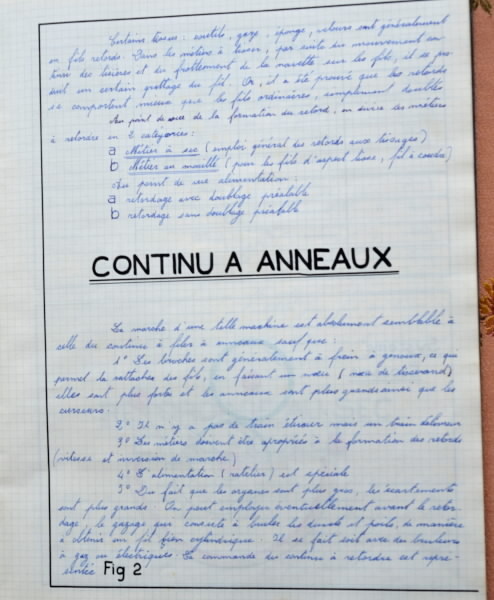 Certains tissus: coutils, gaze, éponge, velours sont généralement
en fils retords. Dans les métiers à tisser, par suite du mouvement
des lisières et du frottement de la navette sur les fils, il se pro
duit un certain grattage du fil. Or, il a été prouvé que les retords
se comportent mieux que les fils ordinaires, simplement doublés
Au point de vue de la formation du retord, on divise les métiers
à retordre en 2 catégories:
a Métier à sec (emploi général des retords aux tissages)
b Métier au mouillé (pour les fils d'aspect lisse, fil à coudre)
Au point de vue alimentation:
a retordage avec doublage préalable
b retordage sans doublage préalable
CONTINU A ANNEAUX
La marche d'une telle machine est absolument semblable à
celle du continu à filer à anneaux sauf que:
1° Les broches sont généralement à frein à genoux, ce qui
permet la rattache du fil, en faisant un nœud (nœud de tisserand)
elles sont plus fortes et les anneaux sont plus grands ainsi que les
curseurs.
2° Il n'y a pas de train étireur mais un train délivreur
3° Les métiers doivent être apropriés à la formation des retords
(vitesse et inversion de marche)
4° L'alimentation (ratelier) est spéciale
5° Du fait que les organes sont plus gros, les écartements
sont plus grands. On peut employer éventuellement avant le retor
dage, le gazage qui consiste à brûler les duvets et poils, de manière
à obtenir un fil bien cylindrique. Il se fait soit avec des brûleurs
à gaz ou électriques. La commande du continu à retordre est repré-
sentée Fig 2